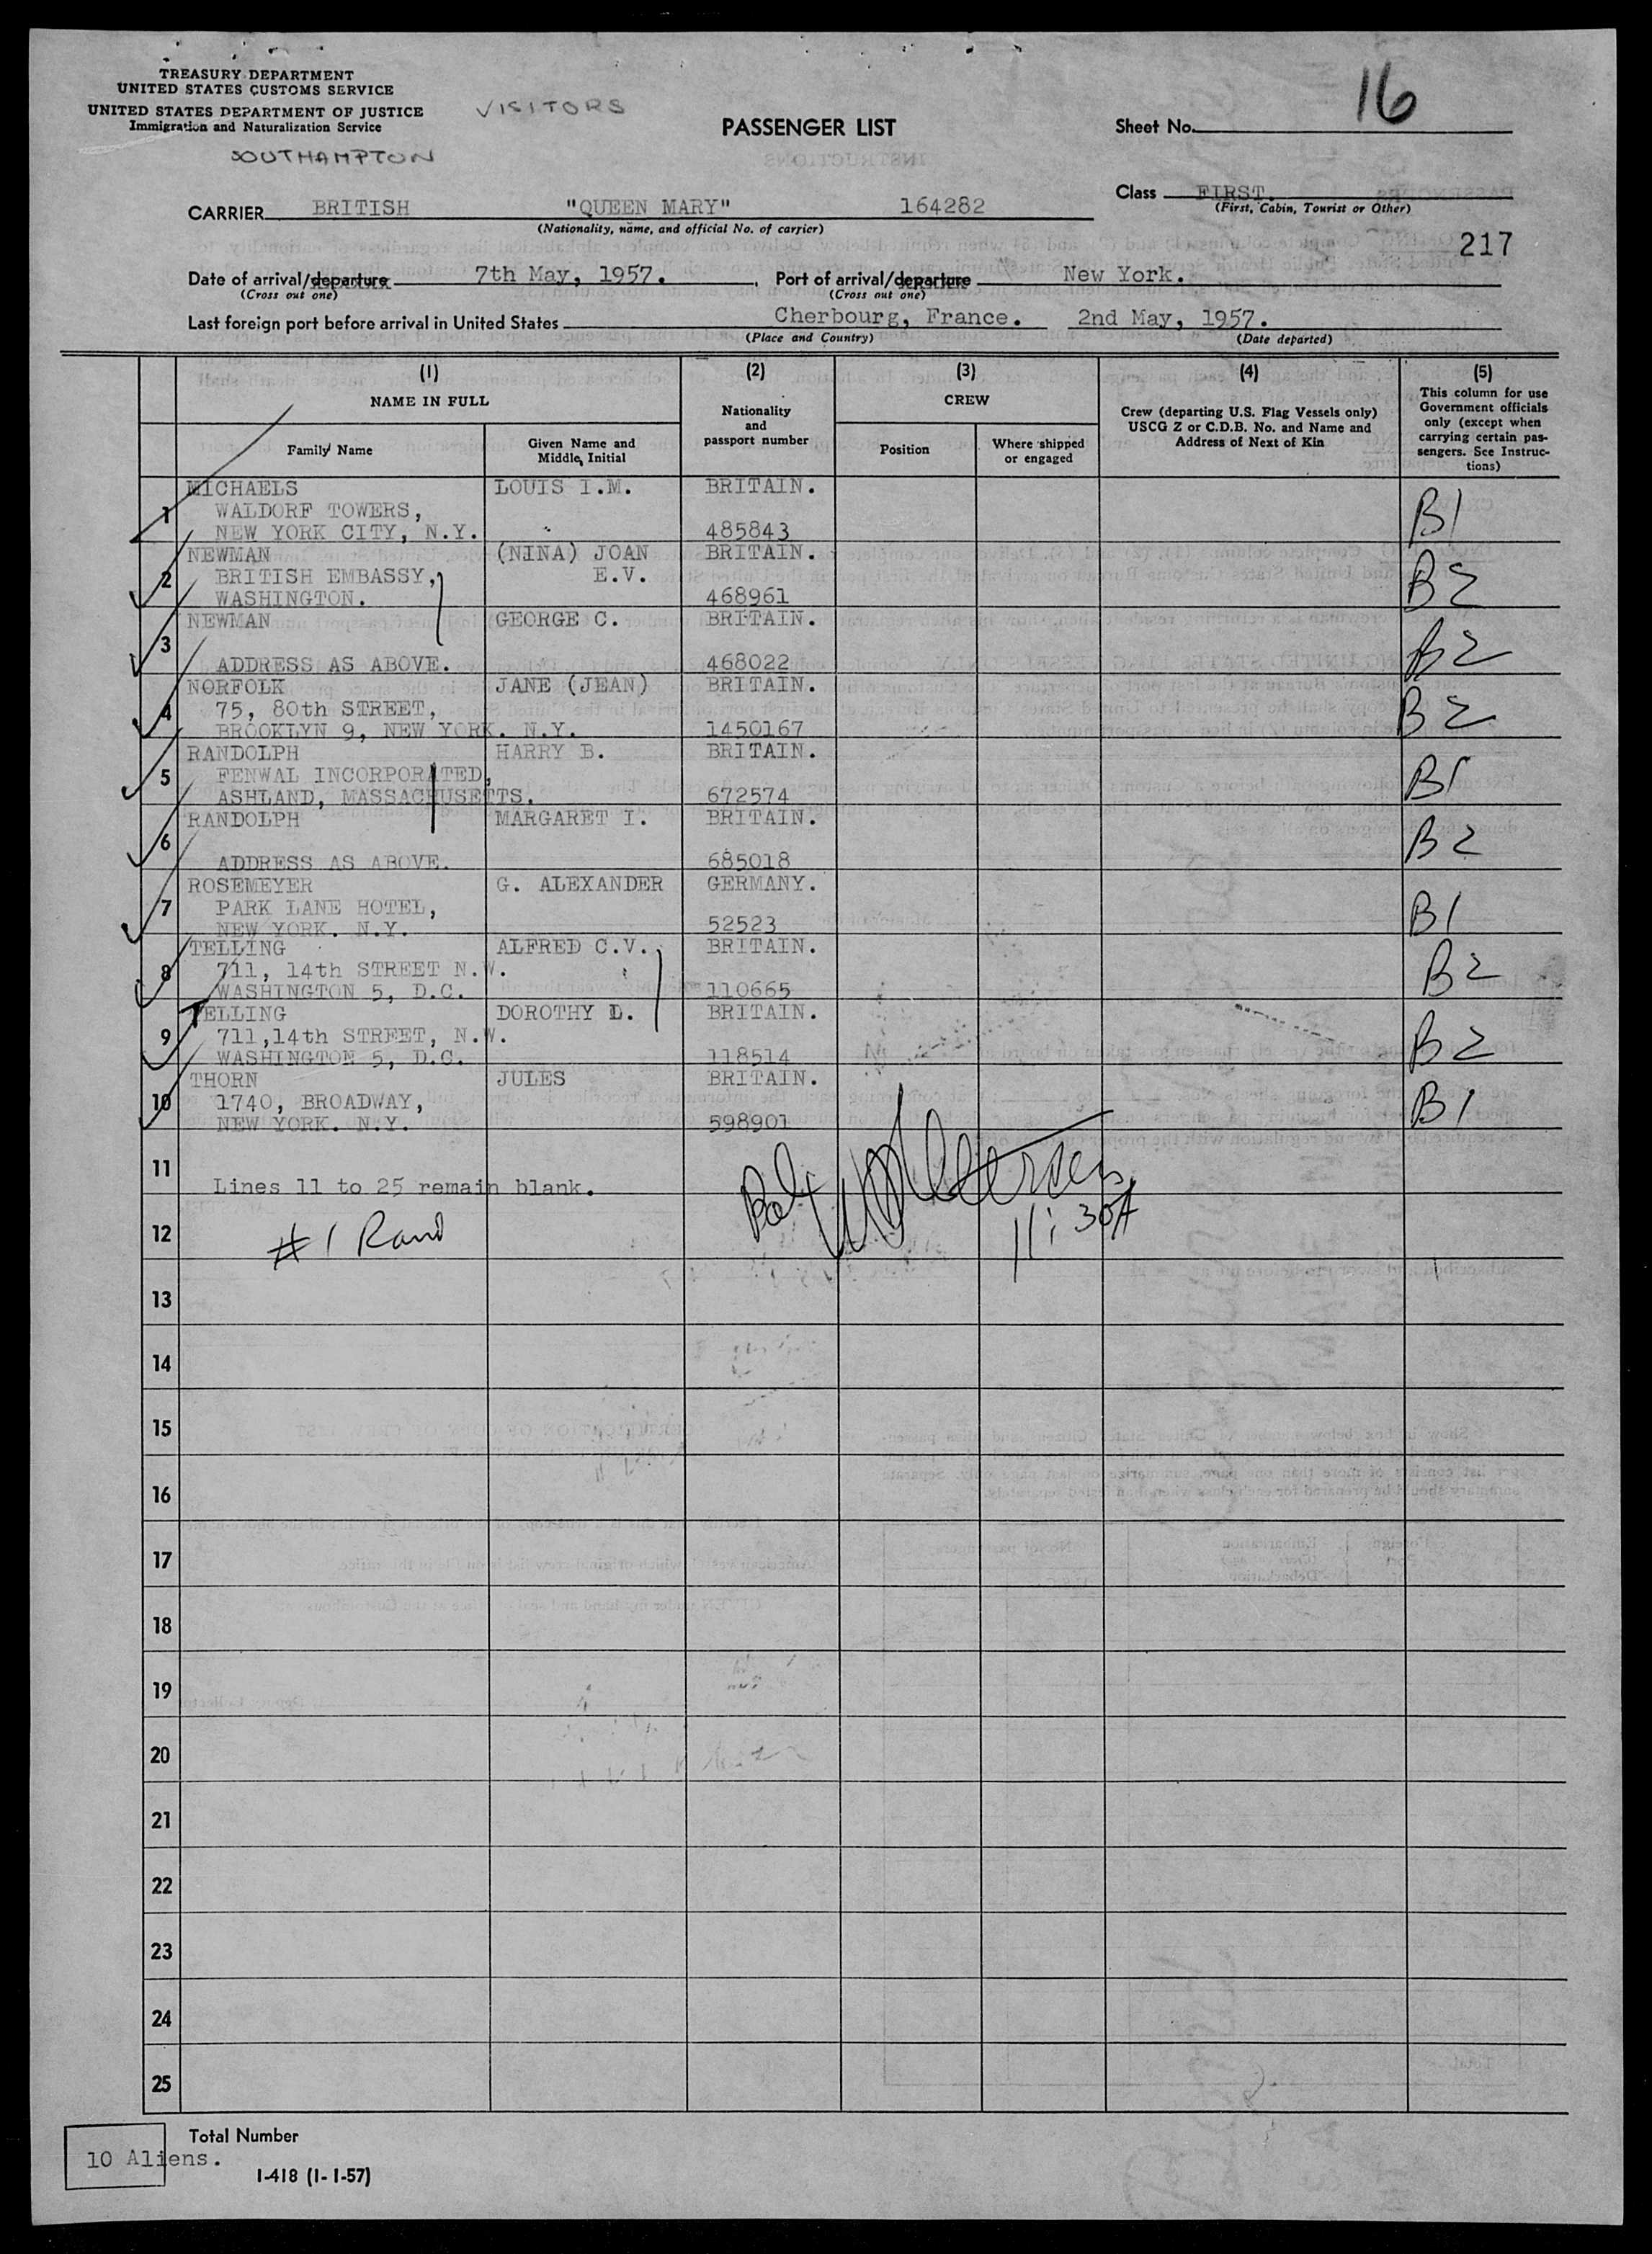 TREASURY DEPARTMENT
UNITED STATES CUSTOMS SERVICE
UNITED STATES DEPARTMENT OF JUSTICE
Immigration and Naturalization Service
VISITORS
SOUTHAMPTON
PASSENGER LIST
Sheet No. 16
CARRIER BRITISH "QUEEN MARY" 164282
(Nationality, name, and official No. of carrier)
Class FIRST.
(First, Cabin, Tourist or Other)
217
Date of arrival/departure 7th May, 1957. Port of arrival/departure New York.
(Cross out one) (Cross out one)
Last foreign port before arrival in United States Cherbourg, France. 2nd May, 1957.
(Place and Country) (Date departed)
(1) (2) (3) (4) (5)
NAME IN FULL
Family Name
Given Name and Middle Initial
Nationality and passport number
CREW
Position
Where shipped or engaged
Crew (departing U.S. Flag Vessels only)
USCG Z or C.D.B. No. and Name and
Address of Next of Kin
This column for use
Government officials
only (except when
carrying certain pas-
sengers. See Instruc-
tions)
MICHAELS LOUIS I.M. BRITAIN.
1 WALDORF TOWERS, B1
NEW YORK CITY, N.Y. 485843
NEWMAN (NINA) JOAN BRITAIN.
2 BRITISH EMBASSY, E.V. B2
WASHINGTON. 468961
NEWMAN GEORGE C. BRITAIN.
3 B2
ADDRESS AS ABOVE. 468022
NORFOLK JANE (JEAN) BRITAIN.
4 75, 80th STREET, B2
BROOKLYN 9, NEW YORK. N.Y. 1450167
RANDOLPH HARRY B. BRITAIN.
5 FENWAL INCORPORATED, B1
ASHLAND, MASSACHUSETTS. 672574
RANDOLPH MARGARET I. BRITAIN.
6 B2
ADDRESS AS ABOVE. 685018
ROSEMEYER G. ALEXANDER GERMANY.
7 PARK LANE HOTEL, B1
NEW YORK. N.Y. 52523
TELLING ALFRED C.V. BRITAIN.
8 711, 14th STREET N.W. B2
WASHINGTON 5, D.C. 110665
TELLING DOROTHY L. BRITAIN.
9 711,14th STREET, N.W. B2
WASHINGTON 5, D.C. 118514
THORN JULES BRITAIN.
10 1740, BROADWAY, B1
NEW YORK. N.Y. 598901
11
Lines 11 to 25 remain blank.
12 # 1 Rand 11:30A
13
14
15
16
17
18
19
20
21
22
23
24
25
Total Number
10 Aliens.
I-418 (1-1-57)